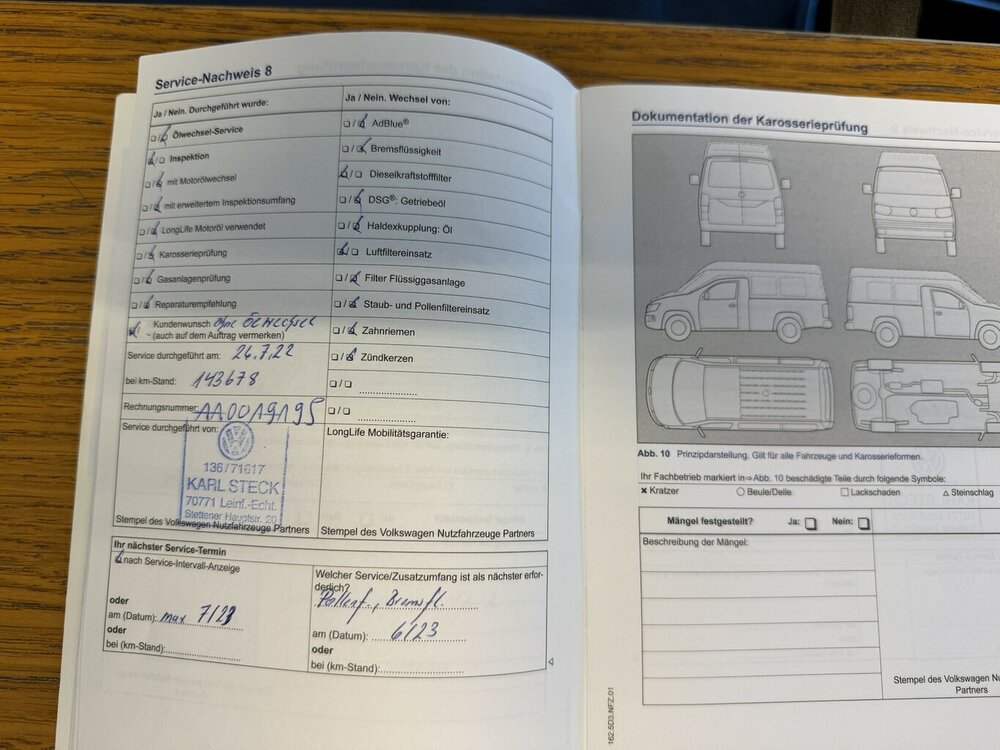 Service-Nachweis 8
Ja / Nein. Durchgeführt wurde:
Ölwechsel-Service
Inspektion
mit Motorölwechsel
mit erweitertem Inspektionsumfang
LongLife Motoröl verwendet
Karosserieprüfung
Gasanlagenprüfung
Reparaturempfehlung
Kundenwunsch ohne Ölwechsel
(auch auf dem Auftrag vermerken)
Service durchgeführt am: 26.7.22
bei km-Stand: 143678
Rechnungsnummer: AA0019195
Service durchgeführt von:
136/71617
KARL STECK
70771 Leinf.-Echt.
Stettener Hauptstr. 20
Stempel des Volkswagen Nutzfahrzeuge Partners
Ja / Nein. Wechsel von:
AdBlue®
Bremsflüssigkeit
Dieselkraftstofffilter
DSG®: Getriebeöl
Haldexkupplung: Öl
Luftfiltereinsatz
Filter Flüssiggasanlage
Staub- und Pollenfiltereinsatz
Zahnriemen
Zündkerzen
LongLife Mobilitätsgarantie:
Stempel des Volkswagen Nutzfahrzeuge Partners
Ihr nächster Service-Termin
nach Service-Intervall-Anzeige
oder
am (Datum): max 7/23
oder
bei (km-Stand):
Welcher Service/Zusatzumfang ist als nächster erfor-
derlich?
Pollenf., Bremsfl.
am (Datum): 6/23
oder
bei (km-Stand):
Dokumentation der Karosserieprüfung
Abb. 10 Prinzipdarstellung. Gilt für alle Fahrzeuge und Karosserieformen.
Ihr Fachbetrieb markiert in ⇒ Abb. 10 beschädigte Teile durch folgende Symbole:
Kratzer Beule/Delle Lackschaden Steinschlag
Mängel festgestellt? Ja: Nein:
Beschreibung der Mängel:
Stempel des Volkswagen
Partners
162.5D3.NFZ.01